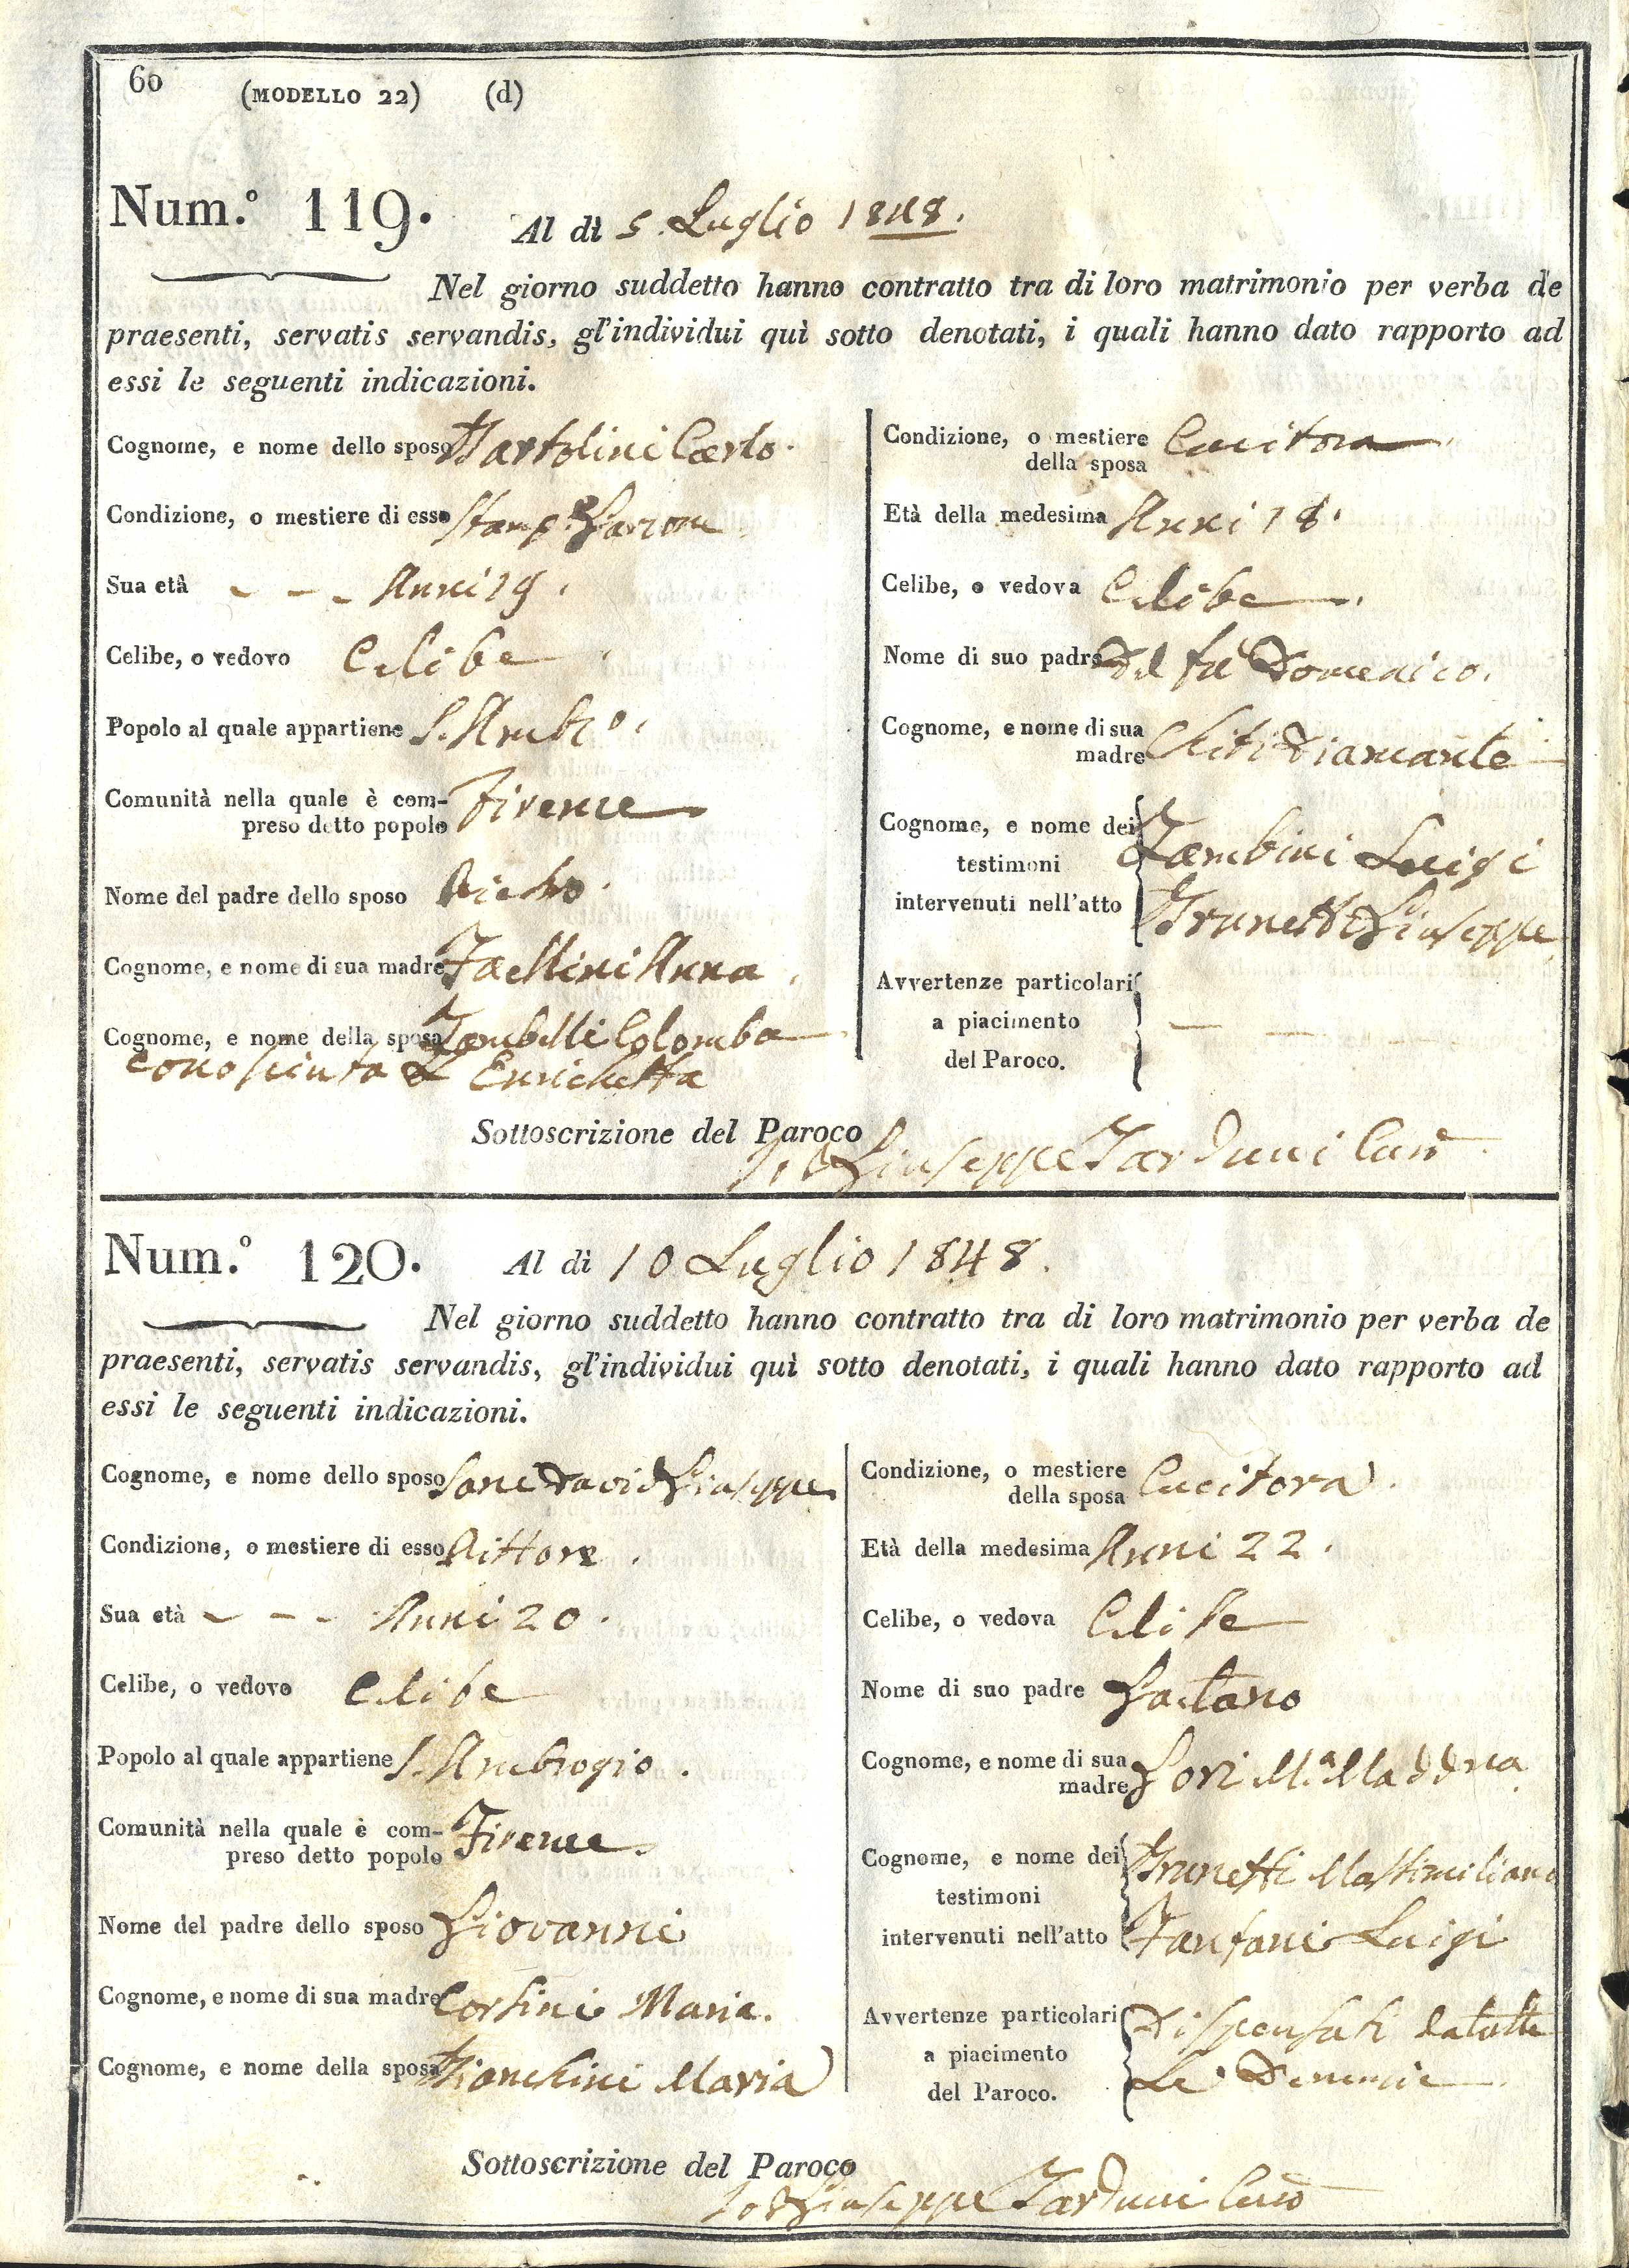 60 (MODELLO 22) (d)
Num.° 119. Al dì 5. Luglio 1848.
Nel giorno suddetto hanno contratto tra di loro matrimonio per verba de
praesenti, servatis servandis, gl'individui quì sotto denotati, i quali hanno dato rapporto ad
essi le seguenti indicazioni.
Cognome, e nome dello sposo Bartolini Carlo.
Condizione, o mestiere di esso
Sua età - - - Anni 19.
Celibe, o vedovo Celibe
Popolo al quale appartiene S. Ambr.o.
Comunità nella quale è com-
preso detto popolo Firenze
Nome del padre dello sposo
Cognome, e nome di sua madre Anna
Cognome, e nome della sposa Colomba
conosciuta Enrichetta
Condizione, o mestiere
della sposa Cucitora
Età della medesima Anni 18.
Celibe, o vedova Celibe
Nome di suo padre Del fu Domenico.
Cognome, e nome di sua
madre Diamante
Cognome, e nome dei
testimoni Zambini Luigi
intervenuti nell'atto Brunetti Giuseppe
Avvertenze particolari
a piacimento
del Paroco.
Sottoscrizione del Paroco
Giuseppe Tarduni
Num.° 120. Al dì 10 Luglio 1848.
Nel giorno suddetto hanno contratto tra di loro matrimonio per verba de
praesenti, servatis servandis, gl'individui quì sotto denotati, i quali hanno dato rapporto ad
essi le seguenti indicazioni.
Cognome, e nome dello sposo Sani David Giuseppe
Condizione, o mestiere di esso Pittore.
Sua età - - - Anni 20.
Celibe, o vedovo Celibe
Popolo al quale appartiene S. Ambrogio.
Comunità nella quale è com-
preso detto popolo Firenze.
Nome del padre dello sposo Giovanni
Cognome, e nome di sua madre Corsini Maria.
Cognome, e nome della sposa Bianchini Maria
Condizione, o mestiere
della sposa Cucitora.
Età della medesima Anni 22.
Celibe, o vedova Celibe
Nome di suo padre Gaetano
Cognome, e nome di sua
madre Gori M.a Madd.na
Cognome, e nome dei Brunetti Massimiliano
testimoni
intervenuti nell'atto Fanfani Luigi
Avvertenze particolari Dispensati da tutte
a piacimento
del Paroco. Le Denunzie
Sottoscrizione del Paroco
Giuseppe Tarduni